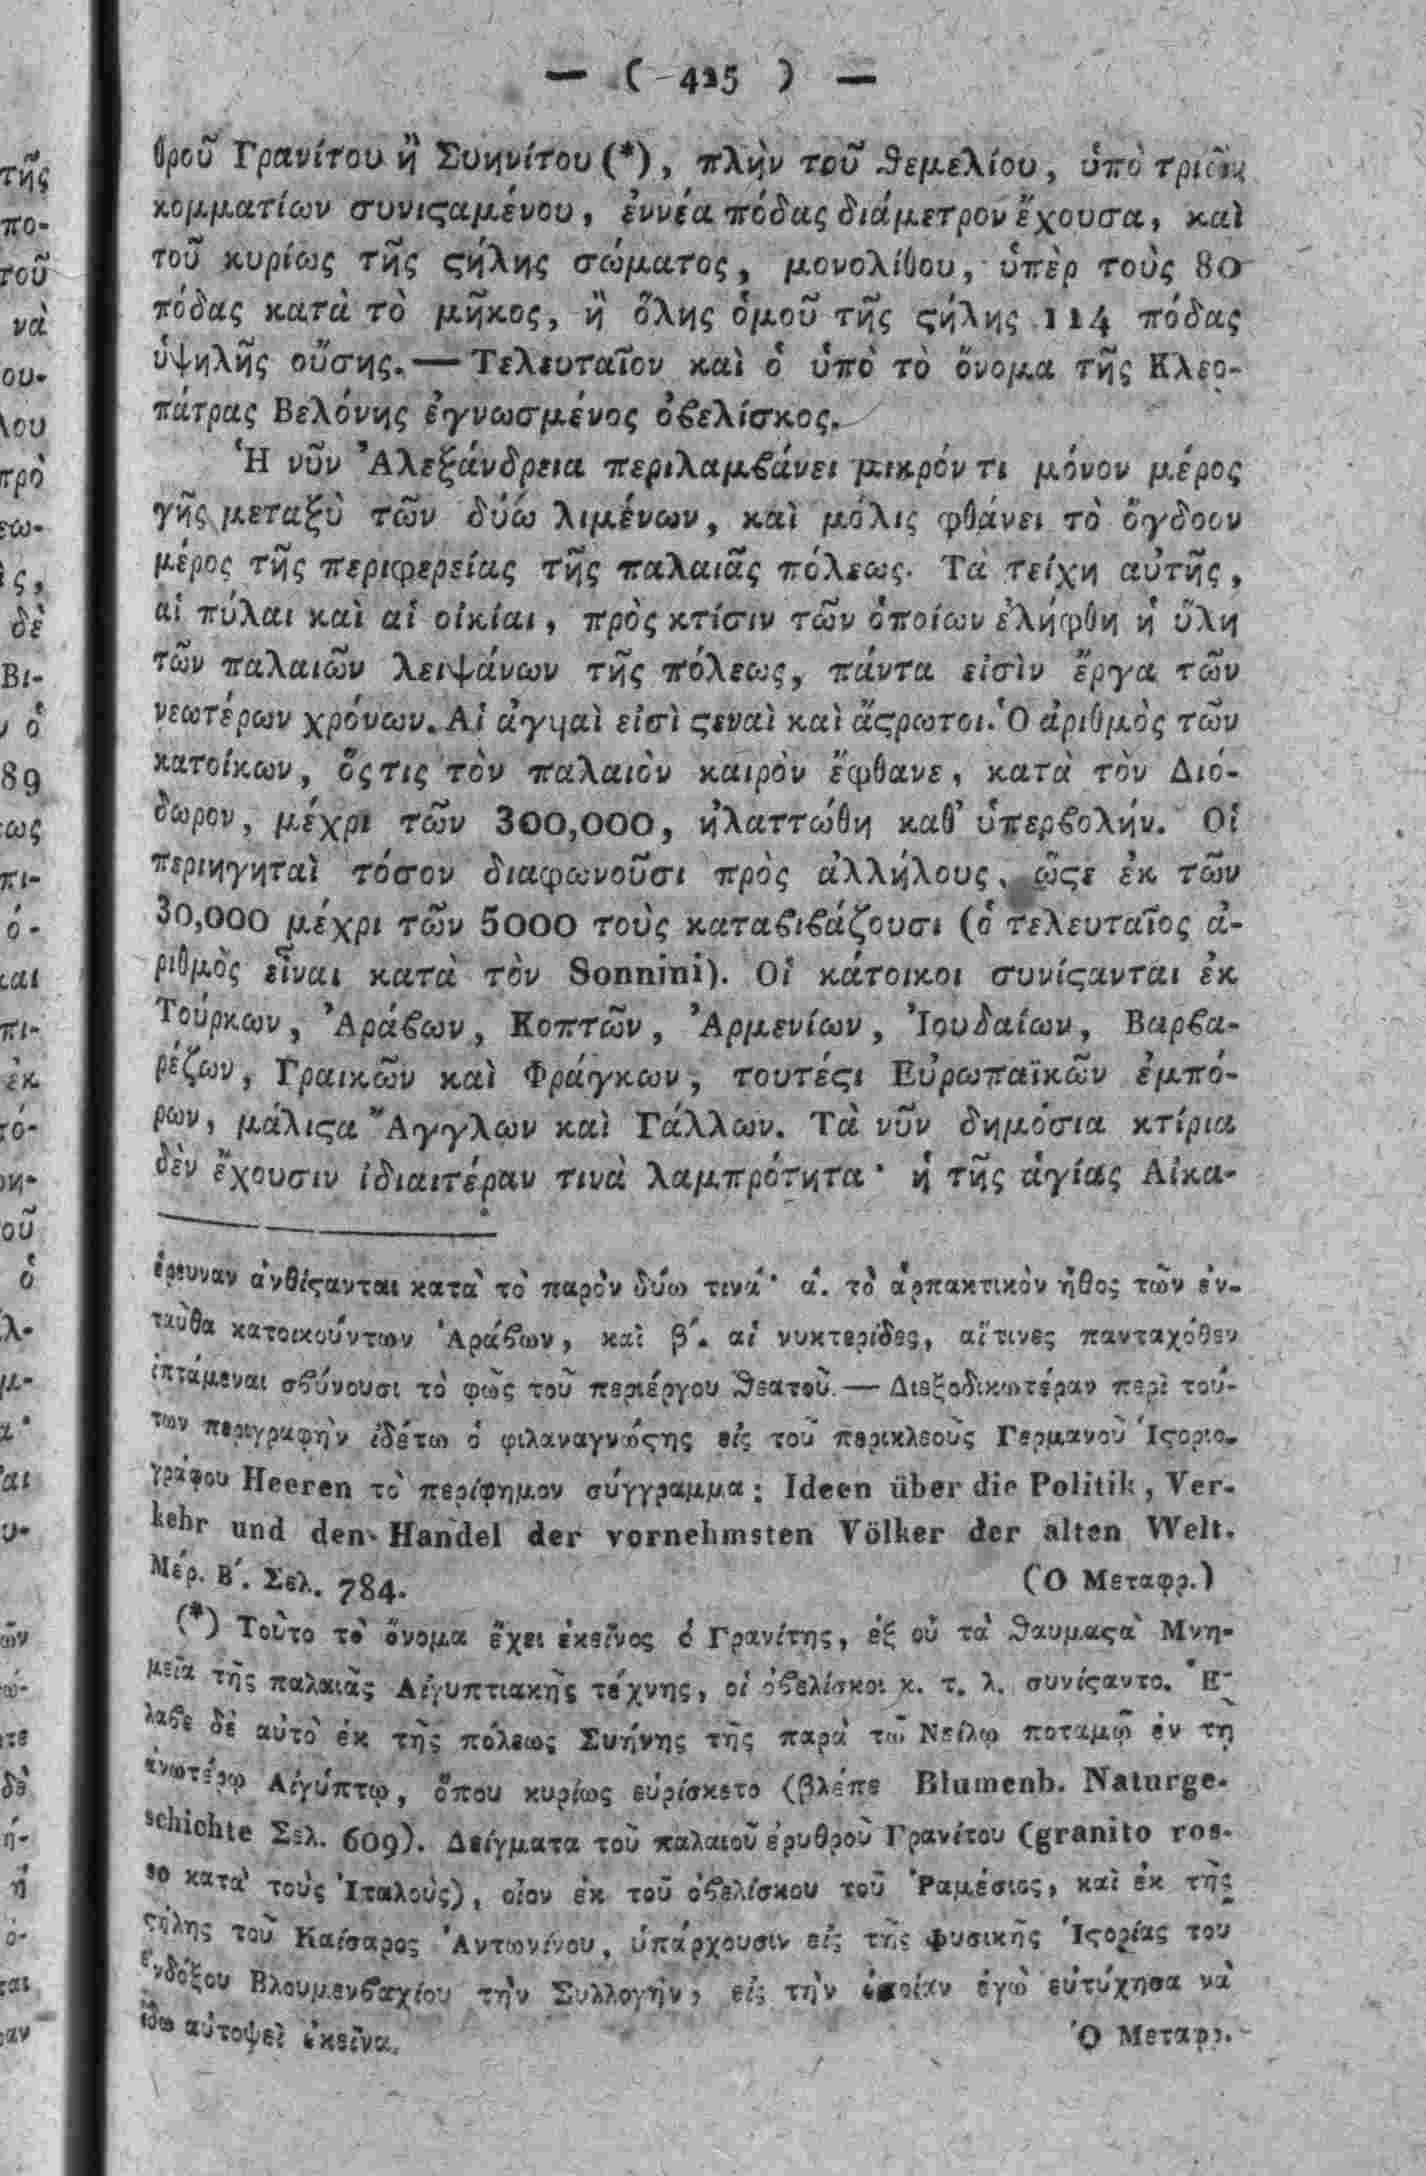 — ( 425 ) —
θροῦ Γρανίτου ἢ Συηνίτου (*), πλὴν τοῦ θεμελίου, ὑπὸ τριῶν
κομματίων συνιςαμένου, ἐννέα πόδας διάμετρον ἔχουσα, καὶ
τοῦ κυρίως τῆς ςήλης σώματος, μονολίθου, ὑπὲρ τοὺς 80
πόδας κατὰ τὸ μῆκος, ἢ ὅλης ὁμοῦ τῆς ςήλης 114 πόδας
ὑψηλῆς οὔσης. — Τελευταῖον καὶ ὁ ὑπὸ τὸ ὄνομα τῆς Κλεο-
πάτρας Βελόνης ἐγνωσμένος ὀβελίσκος.
Ἡ νῦν Ἀλεξάνδρεια περιλαμβάνει μικρόν τι μόνον μέρος
γῆς μεταξὺ τῶν δύω λιμένων, καὶ μόλις φθάνει τὸ ὄγδοον
μέρος τῆς περιφερείας τῆς παλαιᾶς πόλεως. Τὰ τείχη αὐτῆς,
αἱ πύλαι καὶ αἱ οἰκίαι, πρὸς κτίσιν τῶν ὁποίων ἐλήφθη ἡ ὕλη
τῶν παλαιῶν λειψάνων τῆς πόλεως, πάντα εἰσὶν ἔργα τῶν
νεωτέρων χρόνων. Αἱ ἀγυιαὶ εἰσὶ ςεναὶ καὶ ἄςρωτοι. Ὁ ἀριθμὸς τῶν
κατοίκων, ὅςτις τὸν παλαιὸν καιρὸν ἔφθανε, κατὰ τὸν Διό-
δωρον, μέχρι τῶν 300,000, ἠλαττώθη καθ' ὑπερβολήν. Οἱ
περιηγηταὶ τόσον διαφωνοῦσι πρὸς ἀλλήλους, ὥςε ἐκ τῶν
30,000 μέχρι τῶν 5000 τοὺς καταβιβάζουσι (ὁ τελευταῖος ἀ-
ριθμὸς εἶναι κατὰ τὸν Sonnini). Οἱ κάτοικοι συνίςανται ἐκ
Τούρκων, Ἀράβων, Κοπτῶν, Ἀρμενίων, Ἰουδαίων, Βαρβα-
ρέζων, Γραικῶν καὶ Φράγκων, τουτέςι Εὐρωπαϊκῶν ἐμπό-
ρων, μάλιςα Ἄγγλων καὶ Γάλλων. Τὰ νῦν δημόσια κτίρια
δὲν ἔχουσιν ἰδιαιτέραν τινὰ λαμπρότητα· ἡ τῆς ἁγίας Αἰκα-
έρευναν ἀνθίςανται κατὰ τὸ παρὸν δύω τινά· ά. τὸ ἁρπακτικὸν ἦθος τῶν ἐν-
ταῦθα κατοικούντων Ἀράβων, καὶ β'. αἱ νυκτερίδες, αἵτινες πανταχόθεν
ἱπτάμεναι σβύνουσι τὸ φῶς τοῦ περιέργου θεατοῦ. — Διεξοδικωτέραν περὶ τού-
των περιγραφὴν ἰδέτω ὁ φιλαναγνώςης εἰς τοῦ περικλεοῦς Γερμανοῦ Ἱςοριο-
γράφου Heeren τὸ περίφημον σύγγραμμα: Ideen über die Politik, Ver-
kehr und den Handel der vornehmsten Völker der alten Welt.
Μέρ. Β'. Σελ. 784. (Ὁ Μεταφρ.)
(*) Τοῦτο τὸ ὄνομα ἔχει ἐκεῖνος ὁ Γρανίτης, ἐξ οὗ τὰ θαυμαςὰ Μνη-
μεῖα τῆς παλαιᾶς Αἰγυπτιακῆς τέχνης, οἱ ὀβελίσκοι κ. τ. λ. συνίςαντο. Ἔ-
λαβε δὲ αὐτὸ ἐκ τῆς πόλεως Συήνης τῆς παρὰ τῷ Νείλῳ ποταμῷ ἐν τῇ
ἀνωτέρῳ Αἰγύπτῳ, ὅπου κυρίως εὑρίσκετο (βλέπε Blumenb. Naturge-
schichte Σελ. 609). Δείγματα τοῦ παλαιοῦ ἐρυθροῦ Γρανίτου (granito ros-
so κατὰ τοὺς Ἰταλοὺς), οἷον ἐκ τοῦ ὀβελίσκου τοῦ Ῥαμέσιος, καὶ ἐκ τῆς
ςήλης τοῦ Καίσαρος Ἀντωνίνου, ὑπάρχουσιν εἰς τῆς φυσικῆς Ἱςορίας τοῦ
ἐνδόξου Βλουμενβαχίου τὴν Συλλογὴν, εἰς τὴν ὁποίαν ἐγὼ εὐτύχησα νὰ
ἴδω αὐτοψεὶ ἐκεῖνα. Ὁ Μεταφρ.